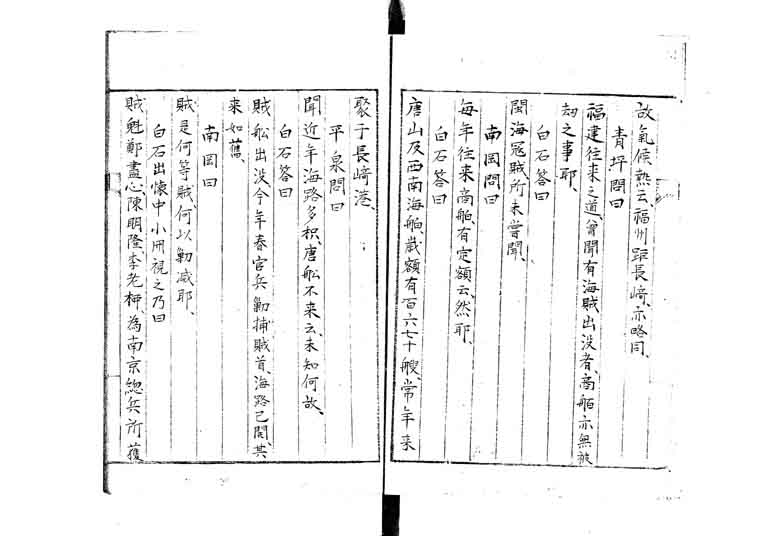 故氣候熱云、福州距長﨑、亦略同、
青坪問曰
福建往来之道、曾聞有海賊出没者、商舶亦無被
刼之事耶、
白石答曰
閩海寇賊所未嘗聞、
南岡問曰
每年往来商舶、有定額云、然耶、
白石答曰
唐山及西南海舶、歲額有百六七十艘、常年来
聚于長﨑港、
平泉問曰
聞近年海路多枳、唐舩不来云、未知何故、
白石答曰
賊舩出没、今年春官兵勦捕賊首、海路已開、其
来如舊、
南岡曰
賊是何等賊、何以勦滅耶、
白石出懷中小冊視之乃曰
賊魁鄭盡心、陳明隆、李老柳、為南京總兵所獲